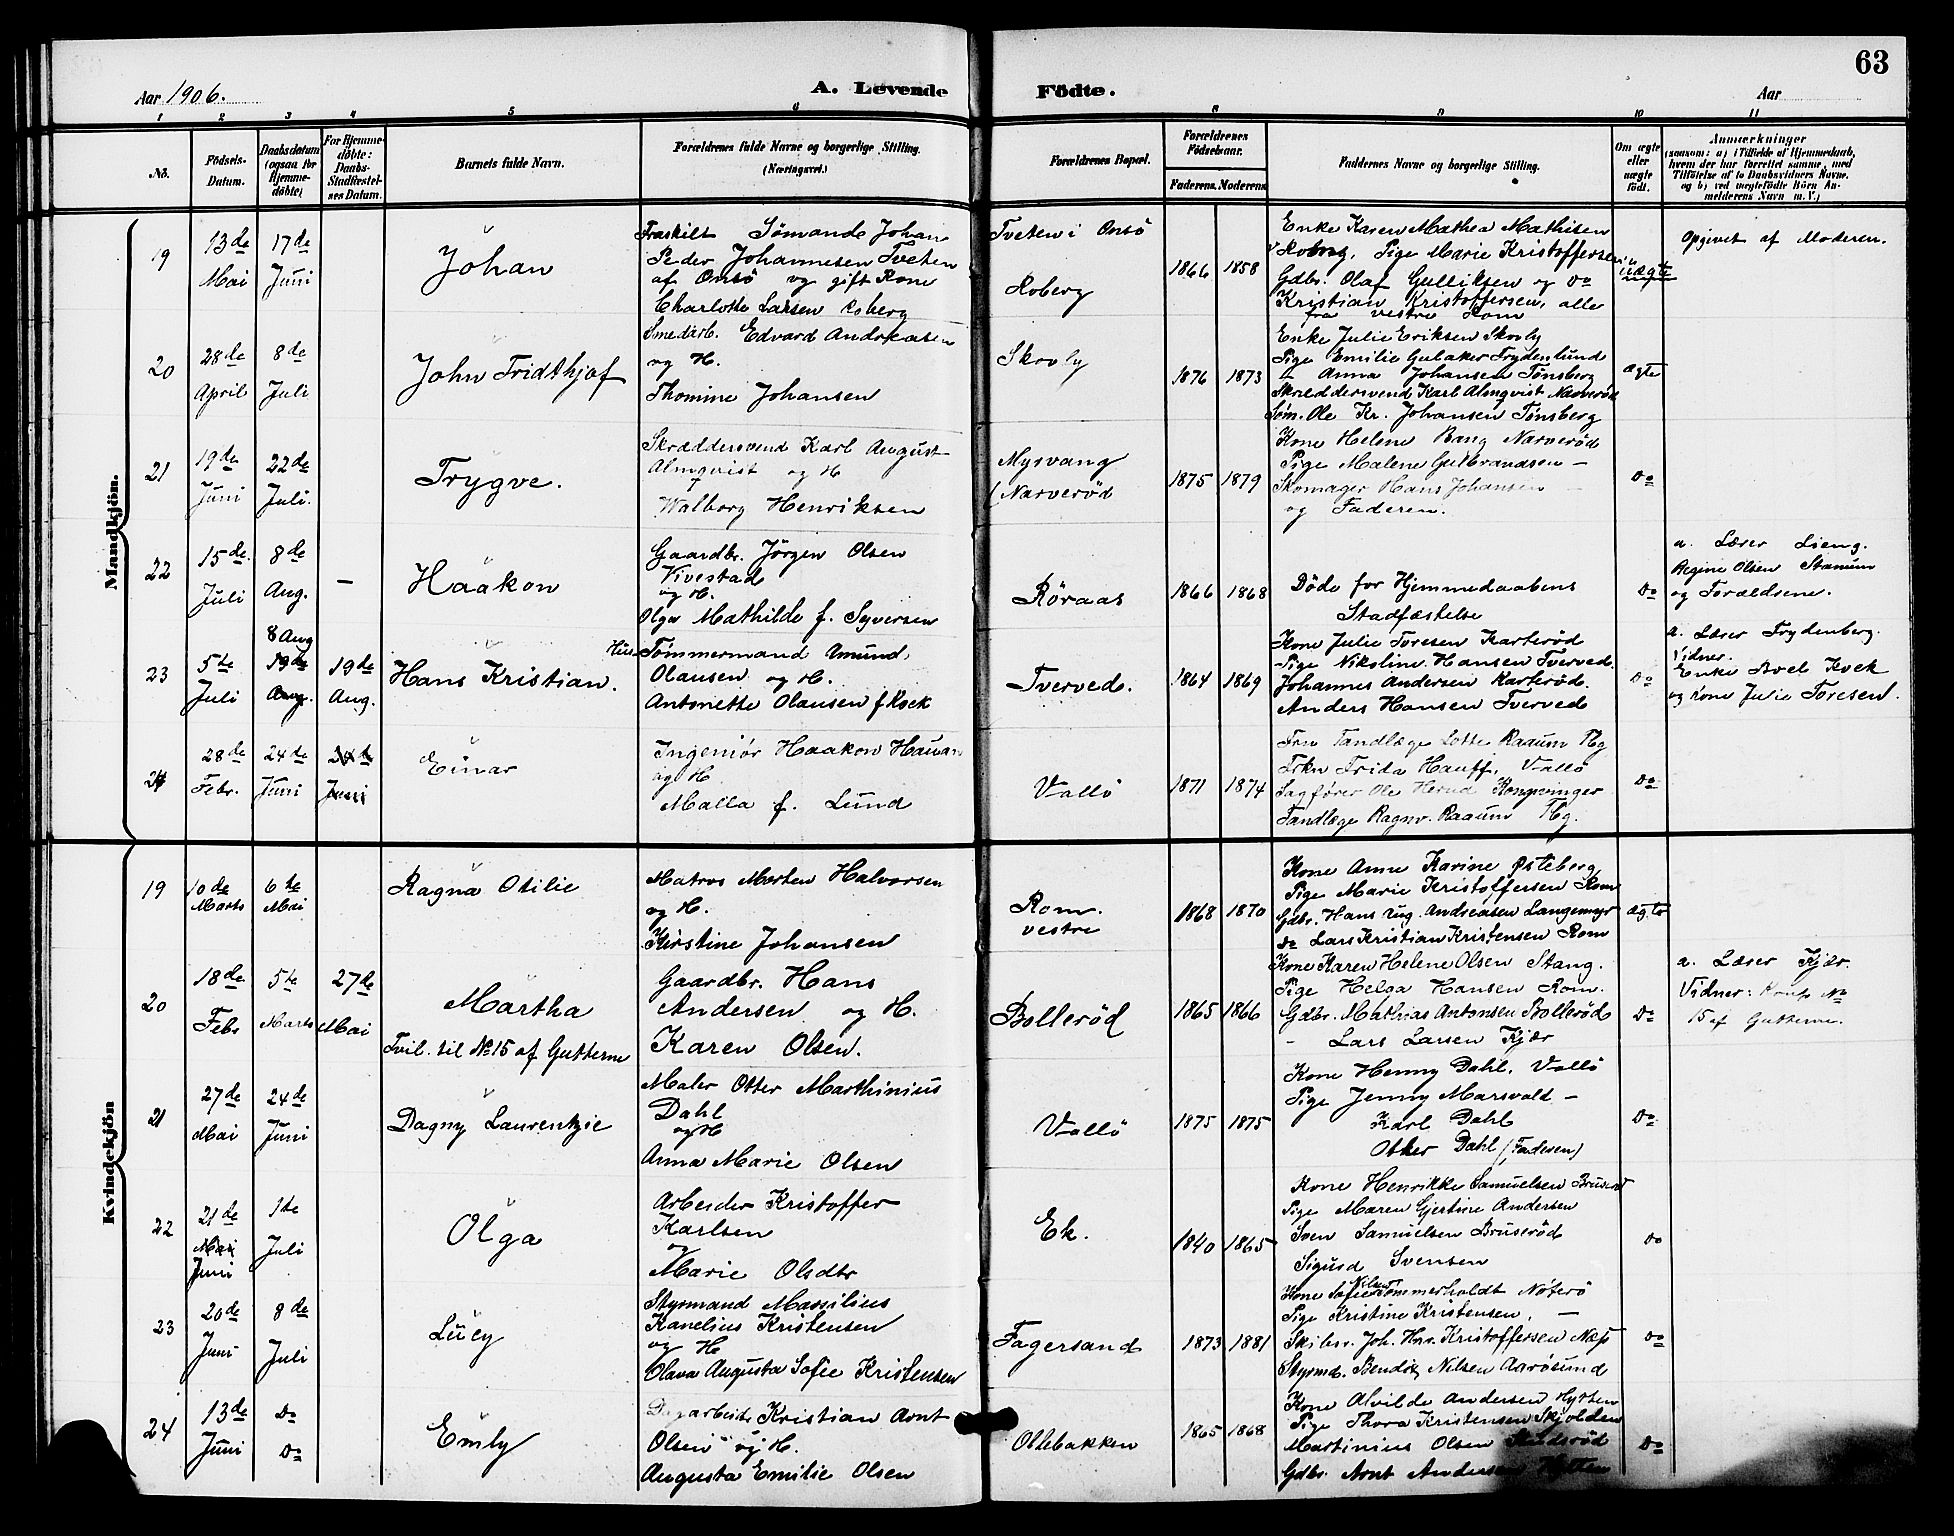 63
Aar 1906.
A. Levende Födte.
Aar
1 2 3 4 5 6 8 9 10 11
No.
Födsels-Datum.
Daabsdatum (ogsaa for Hjemme-döbte)
For Hjemme-döbte: Daabs-Stadfæstel-ses Datum.
Barnets fulde Navn.
Forældrenes fulde Navne og borgerlige Stilling. (Næringsvei.)
Forældrenes Bopæl.
Forældrenes Födselsaar.
Faderens. Moderens
Faddernes Navne og borgerlige Stilling.
Om ægte eller uægte födt.
Anmærkninger
(saasom: a) i Tilfælde af Hjemmedaab,
hvem der har forrettet samme, med
Tilföielse af to Daabsvidners Navne,
og b) ved uægtefödte Börn An-
melderens Navn m. V.)
Mandkjön.
19
13de Mai
17de Juni
Johan
Fraskilt Sömand Johan
Peder Johannesen Tveten
af Onsö og gift Kone
Charlotte Larsen Roberg
Tveten i Onsö
Roberg
1866 1858
Enke Karen Mathea Mathisen
Roberg, Pige Marie Kristoffersen
Gdbr. Olaf Gulliksen og Do
Kristian Kristoffersen, alle
fra vestre Rom
uægte
Opgivet af Moderen.
20
28de April
8de Juli
John Fridthjof
Smedarb. Edvard Andreasen
og H.
Thomine Johansen
Skovly
1876 1873
Enke Julie Eriksen Skovly
Pige Emilie Gulaker Frydenlund
- Anna Johansen Tönsberg
Skræddersvend Karl Almqvist Narveröd
Söm. Ole Kr. Johansen Tönsberg
ægte
21
19de Juni
22de Juli.
Trygve.
Skræddersvend Karl August
Almqvist og H
Walborg Henriksen
Nysvang
(Narveröd
1875 1879
Kone Helene Bang Narveröd
Pige Malene Gulbrandsen -
Skomager Hans Johansen -
og Faderen.
Do
22
15de Juli
8de Aug.
-
Haakon
Gaardbr. Jörgen Olsen
Vivestad
og H.
Olga Mathilde f. Syversen
Röraas
1866 1868
Döde for Hjemmedaabens
Stadfæstelse
Do
a. Lærer Lieng.
Regine Olsen Stamum
og Forældrene.
23
5te Juli
8 Aug
19de Aug.
19de Aug.
Hans Kristian.
Tömmermand Amund
Olausen og H.
Antonette Olausen f Kock
Tverved.
1864 1869
Kone Julie Toresen Karteröd
-Pige Nikoline Hansen Tverved.
Johannes Andersen Karteröd.
Anders Hansen Tverved
Do
a. Lærer Frydenberg.
Vidner.
Enke Axel Kock
og Kone Julie Toresen.
24
28de Febr.
24de Juni
24de Juni
Einar
Ingeniör Haakon Hauan
og H
Malla f. Lund
Vallö
1871 1874
Fru Tandlæge Lotte Raaum Tbg
Frkn Frida Hauff, Vallö
Sagförer Ole Herud Kongsvinger
Tandlæge Ragnv. Raaum Tbg.
Do
Kvindekjön
19
10de Marts
6te Mai
Ragna Otilie
Matros Morten Halvorsen
og H.
Kirstine Johansen
Rom
vestre
1868 1870
Kone Anne Karine Østeberg
Pige Marie Kristoffersen Rom
Gdbr. Hans Aug. Andreasen Langemyr
Do Lars Kristian Kristensen Rom
ægte
20
18de Febr
5te Marts
27de Mai
Martha
Tvil. til No 15 af Gutterne
Gaardbr. Hans
Andersen og H.
Karen Olsen.
Bolleröd
1865 1866
Kone Karen Helene Olsen Stang.
Pige Helga Hansen Rom.
Gdbr. Mathias Antonsen Bolleröd
- Lars Larsen Kjær
Do
a. Lærer Kjær.
Vidner: Konf. No
15 af Gutterne.
21
27de Mai
24de Juni
Dagny Laurentzie
Maler Otter Marthinius
Dahl
og H
Anna Marie Olsen
Vallö
1875 1875
Kone Henny Dahl, Vallö
Pige Jenny Marsvold -
Karl Dahl
Otter Dahl (Faderen)
Do
22
21de
Mai
Juni
1te Juli
Olga
Arbeider Kristoffer
Karlsen
og
Marie Olsdtr
Ek.
1840 1865
Kone Henrikke Samuelsen Bruseröd
Pige Maren Gjertine Andersen
Sven Samuelsen Bruseröd
Sigurd Svensen
Do
23
20de Juni
8de Juli
Lucy
Styrmand Marsilius
Kanelius Kristensen
og H
Olava Augusta Sofie Kristensen
Fagersand
1873 1881
Kone Sofie Nilsen Tommerholdt Nöterö
Pige Kristine Kristensen, -
Skibsr. Joh. Hrr. Kristoffersen Næs
Styrmd. Bendix Nilsen Aarösund
Do
24
13de Juni
Do
Do
Emily
Dagarbeider Kristian Arnt
Olsen og H.
Augusta Emilie Olsen
Ollebakken
1865 1868
Kone Alvilde Andersen Hytten
Pige Thora Kristensen Skjolden
Martinius Olsen
Gdbr. Arnt Andersen Hytten
Do